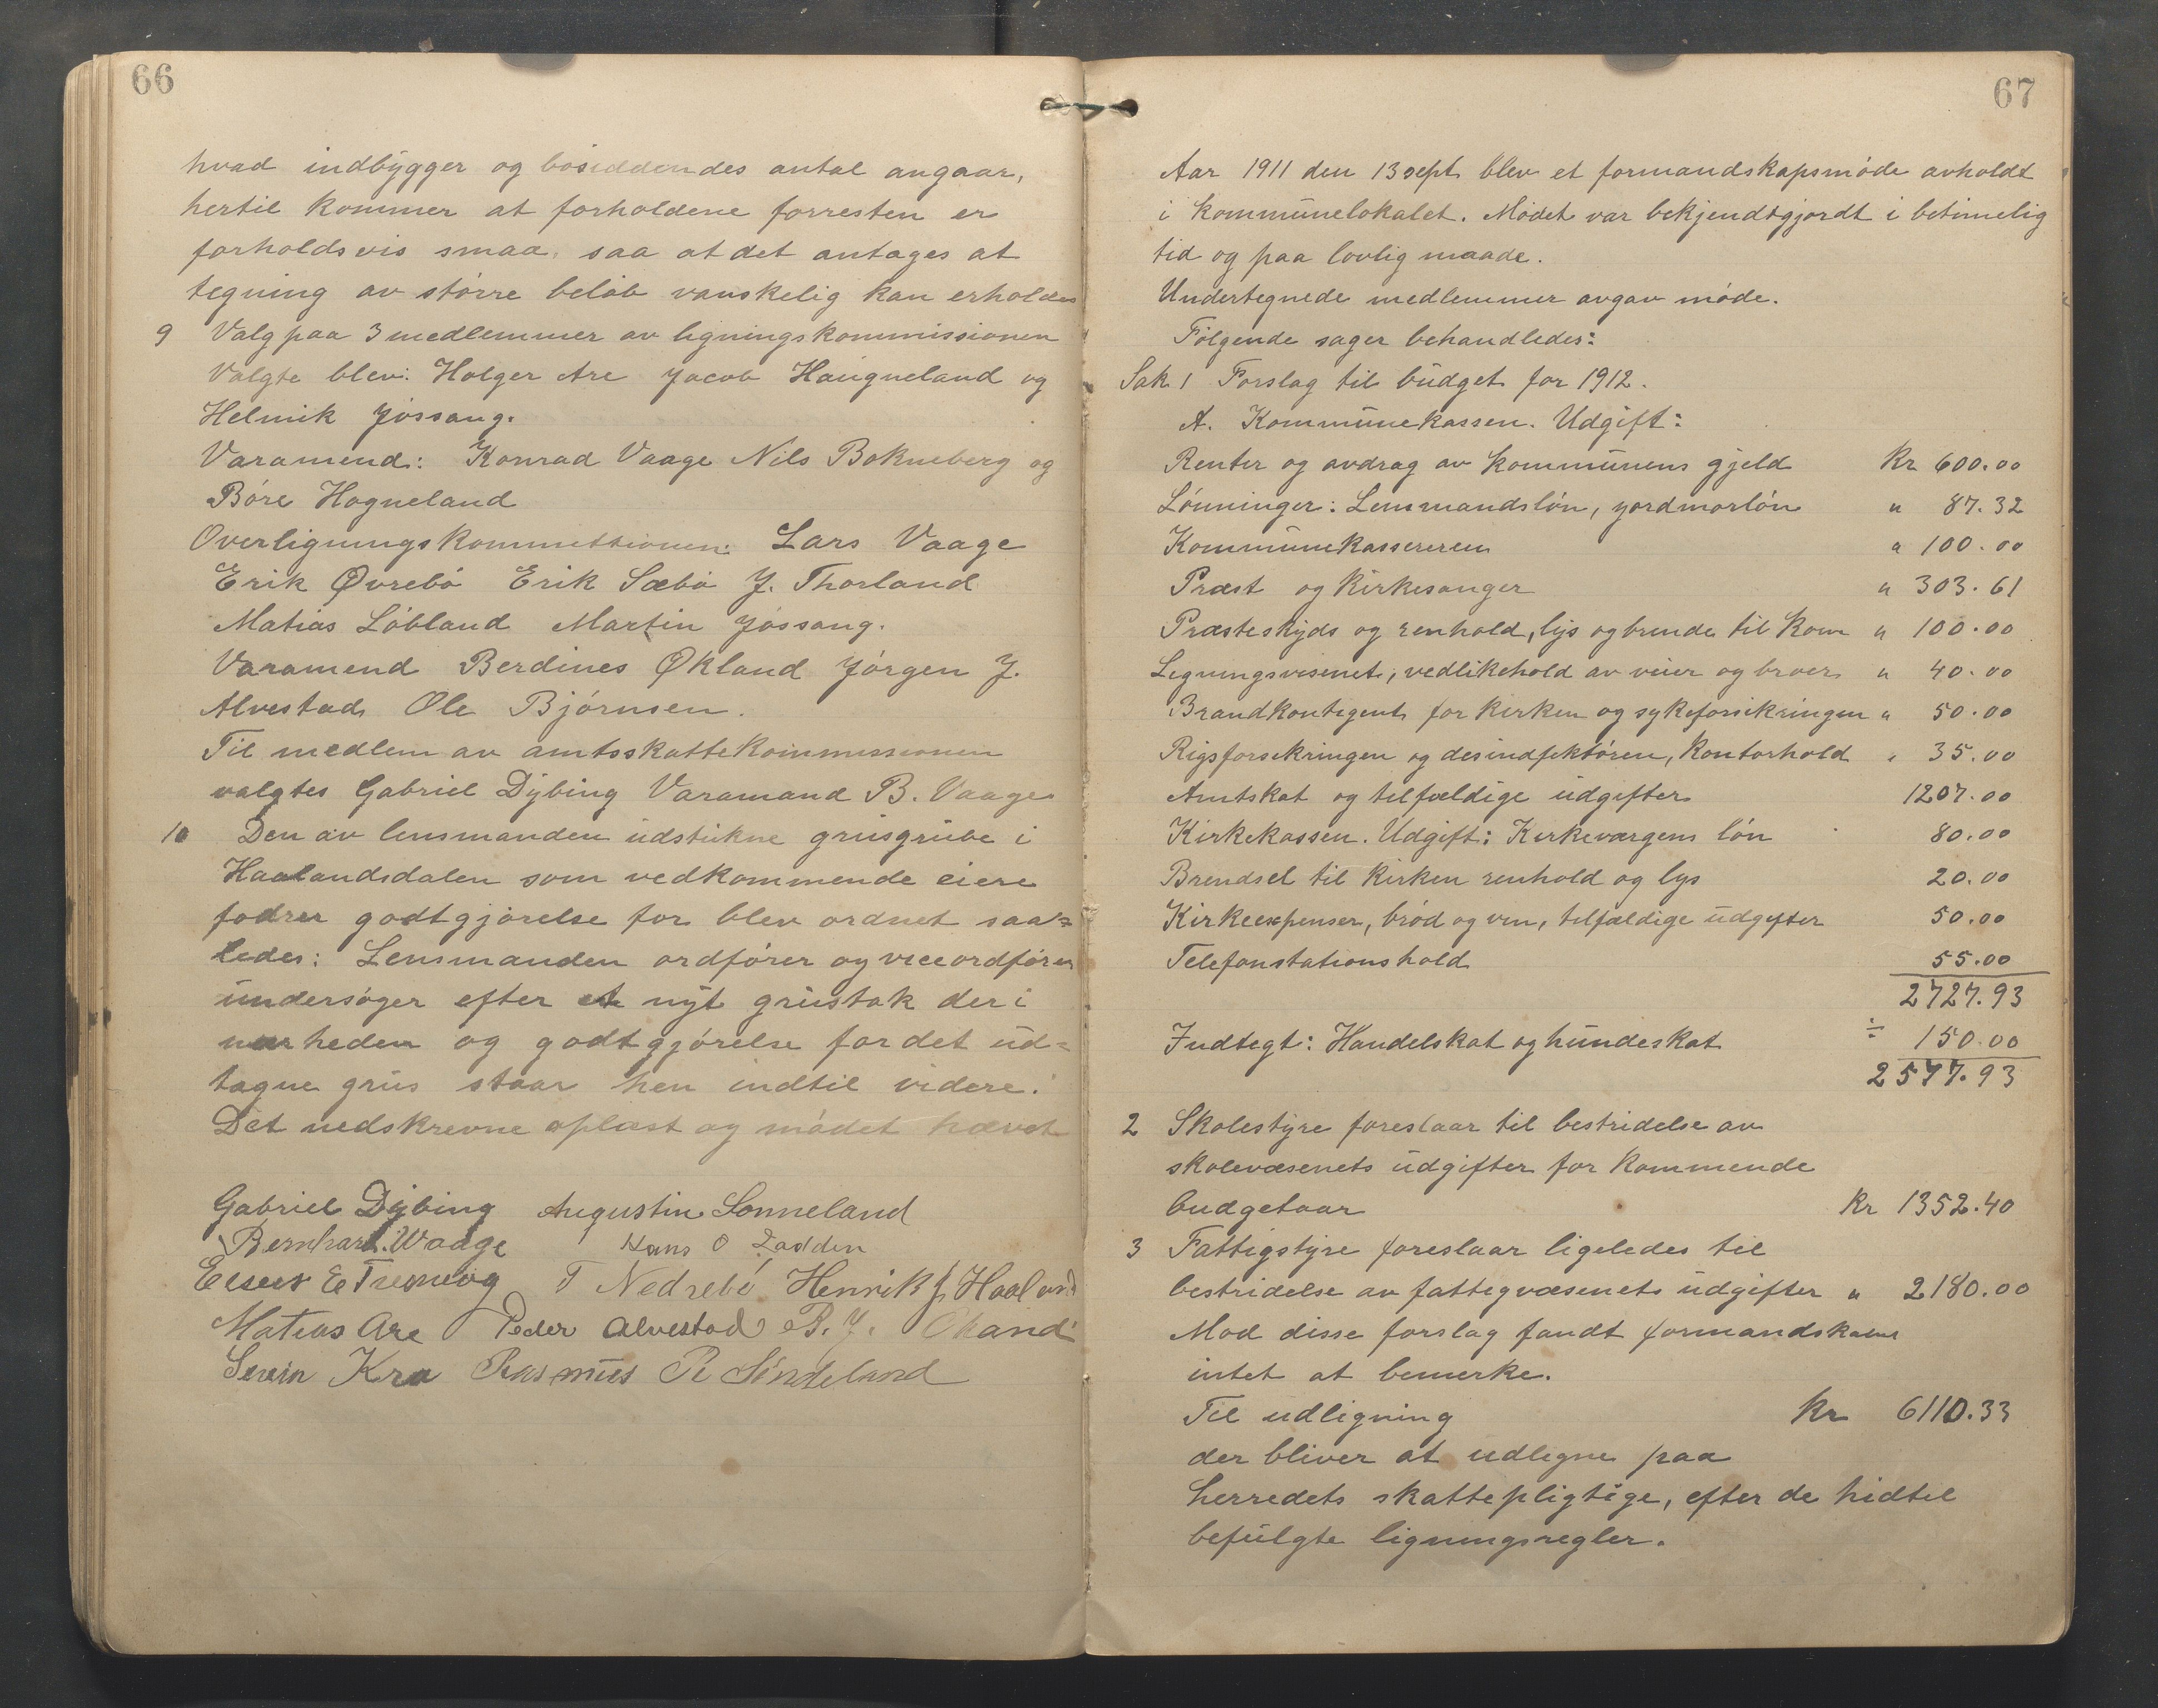 66
hvad indbygger og bosiddendes antal angaar,
hertil kommer at forholdene forresten er
forholdsvis smaa, saa at det antages at
tegning av større beløb vanskelig kan erholdes
9 Valg paa 3 medlemmer av ligningskommissionen
Valgte blev: Holger Are Jacob Haugneland og
Helmik Jøssang.
Varamend: Konrad Vaage Nils Bokneberg og
Børe Hogneland
Overligningskommissionen: Lars Vaage
Erik Øvrebø Erik Sæbø J. Thorland
Matias Løbland Martin Jøssang.
Varamend Berdines Økland Jørgen J.
Alvestad Ole Bjørnsen.
Til medlem av amtsskattekommissionen
valgtes Gabriel Dybing Varamand B. Vaage
10 Den av lensmanden udstukne grusgrube i
Haalandsdalen som vedkommende eiere
fodrer godtgjørelse for blev ordnet saa=
ledes: Lensmanden ordfører og viceordfører
undersøger efter et nyt grustak der i
nærheden og godtgjørelse for det ud=
tagne grus staar hen indtil videre.
Det nedskrevne oplæst og mødet hævet
Gabriel Dybing Augustin Sonneland
Bernhard Waage Hans O
T Nedrebø Henrik J. Haaland
Matias Are Peder Alvestad B. J. Økland
Severin Kro Rasmus R Sindeland
67
Aar 1911 den 13 sept. blev et formandskapsmøde avholdt
i kommunelokalet. Mødet var bekjendtgjordt i betimelig
tid og paa lovlig maade.
Undertegnede medlemmer avgav møde.
Følgende sager behandledes:
Sak 1 Forslag til budget for 1912.
A. Kommunekassen. Udgift:
Renter og avdrag av kommunens gjeld Kr 600.00
Lønninger: Lensmandsløn, jordmorløn " 87.32
Kommunekassereren " 100.00
Præst og kirkesanger " 303.61
Præsteskyds og renhold, lys og brende til kom " 100.00
Ligningsvesenet, vedlikehold av veier og broer " 40.00
Brandkontigent for kirken og sykeforsikringen " 50.00
Rigsforsikringen og desindfektøren, kontorhold " 35.00
Amtskat og tilfældige udgifter 1207.00
Kirkekassen. Udgift: Kirkeværgens løn 80.00
Brendsel til kirken renhold og lys 20.00
Kirkeexpenser, brød og vin, tilfældige udgifter 50.00
Telefonstationshold 55.00
2727.93
Indtegt: Handelskat og hundeskat ÷ 150.00
2577.93
2 Skolestyre foreslaar til bestridelse av
skolevæsenets udgifter for kommende
budgetaar Kr 1352.40
3 Fattigstyre foreslaar ligeledes til
bestridelse av fattigvæsenets udgifter " 2180.00
Mod disse forslag fandt formandskabet
intet at bemerke.
Til udligning Kr 6110.33
der bliver at udligne paa
herredets skattepligtige, efter de hidtil
befulgte ligningsregler.